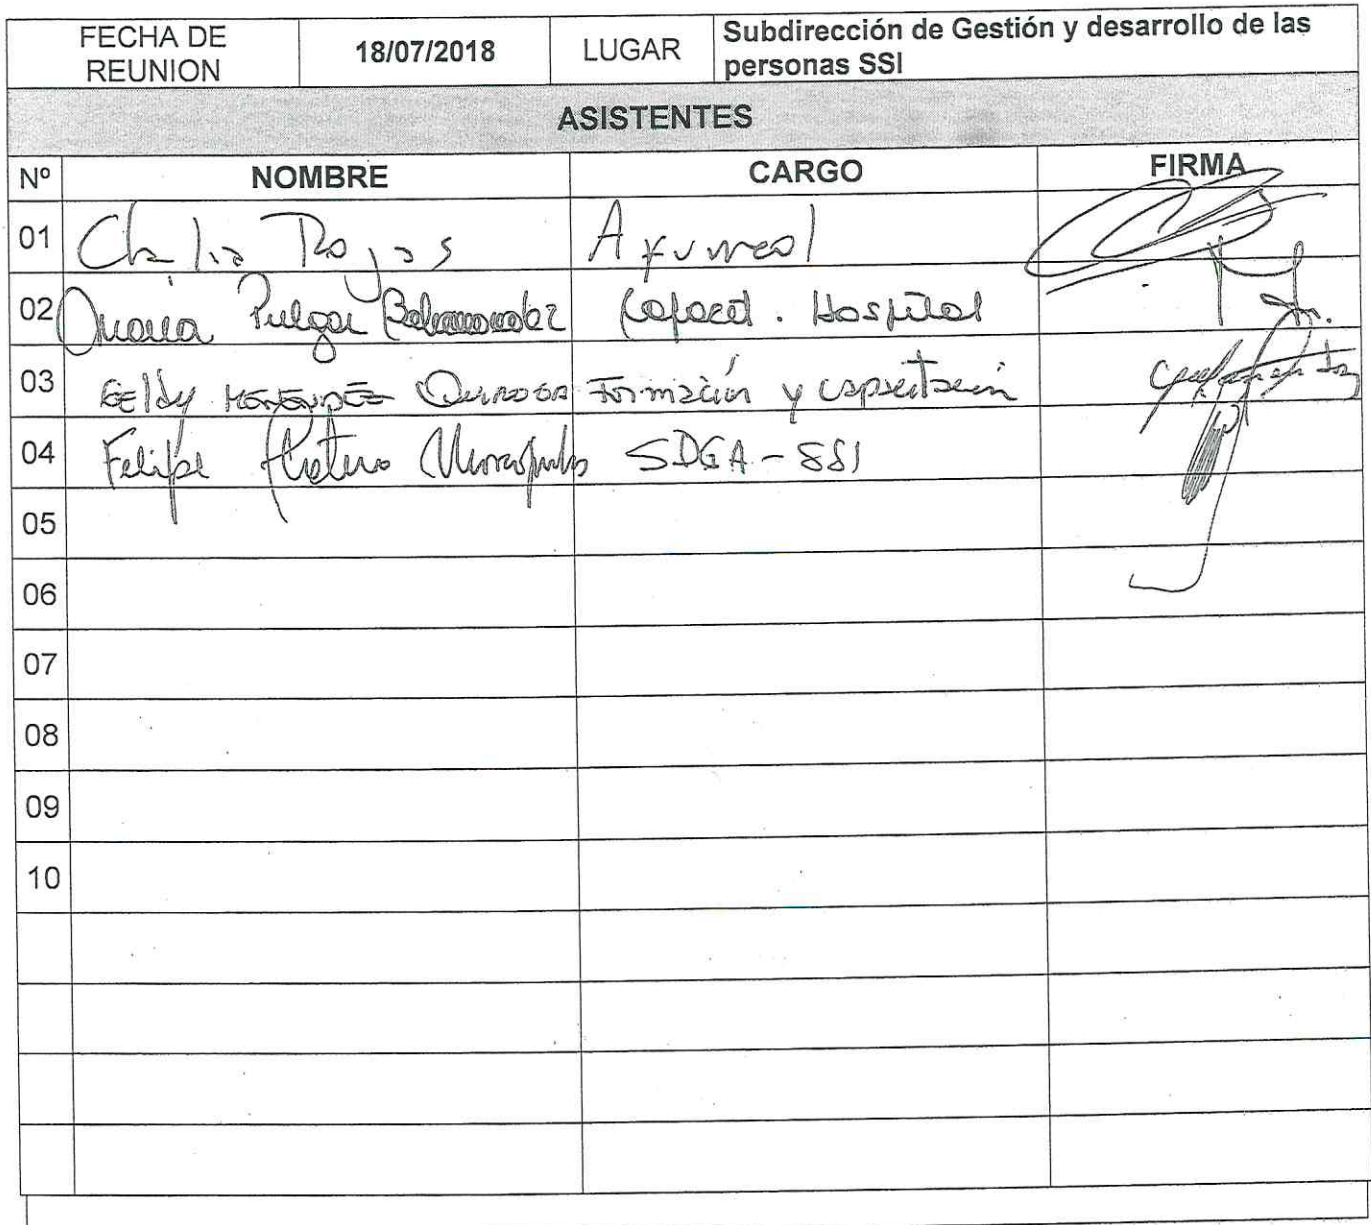 FECHA DE REUNION 18/07/2018 LUGAR Subdirección de Gestión y desarrollo de las personas SSI
ASISTENTES
Nº NOMBRE CARGO FIRMA
01 Rojas
02 Pulgar Capacit. Hospital
03 Geldy Quiroga Formación y capacitación
04 Felipe SDGA - SSI
05
06
07
08
09
10